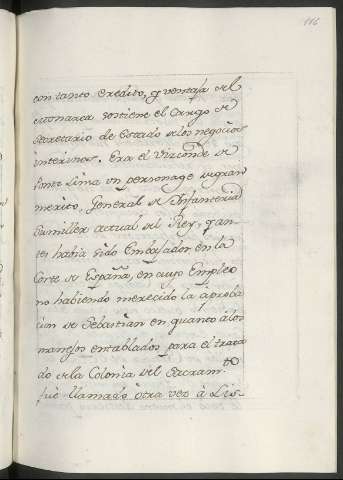 116
con tanto credito, q ventaja del
Monarca sostiene el Cargo de
Secretario de Estado de los negocios
interinos. Era el Vizconde de
Ponte Lima un personage de gran
merito, General de Infanteria
Sumiller actual del Rey, q an-
tes había sido Embajador en la
Corte de España, en cuyo Empleo
no habiendo merecido la aproba
cion de Sebastian en quanto à los
manejos entablados para el trata
do de la Colonia del Sacram.to
fue llamado otra vez à Lis-